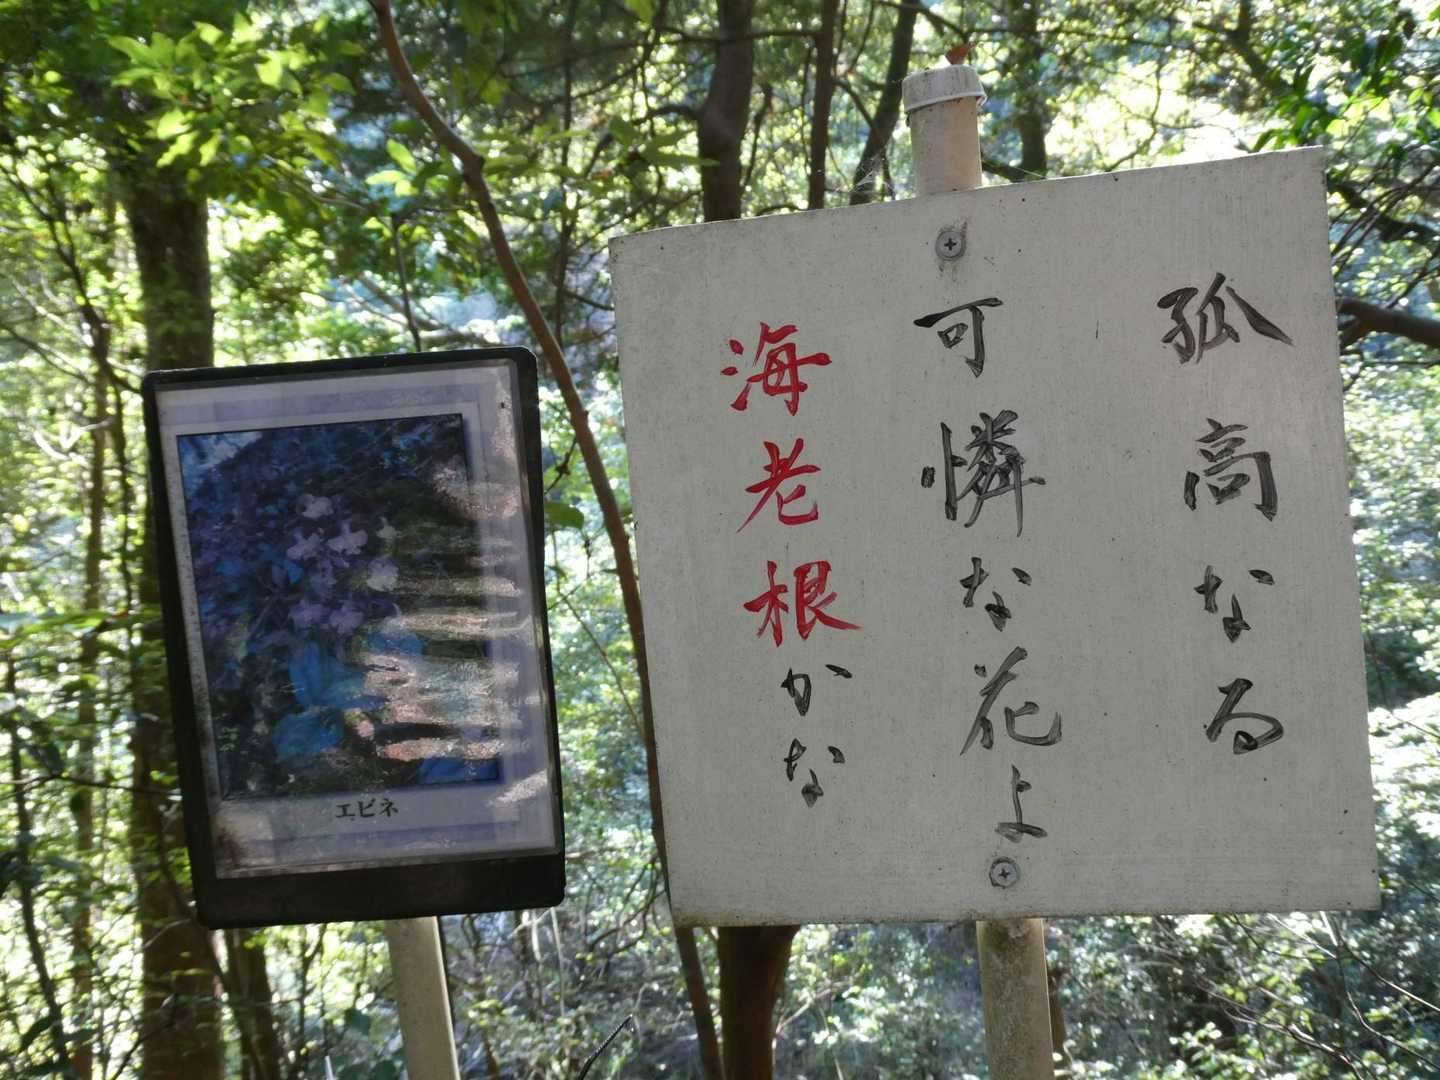 孤高なる
可憐な花よ
海老根かな
エビネ